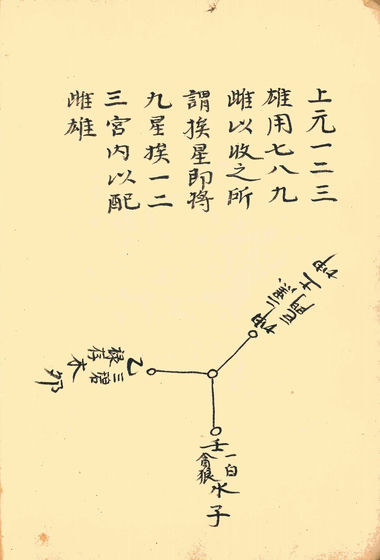 上元一二三
雄用七八九
雌以收之所
謂挨星即將
九星挨一二
三宮內以配
雌雄
坤
乙
三碧
祿存
木
卯
壬
一白
貪狼
水
子